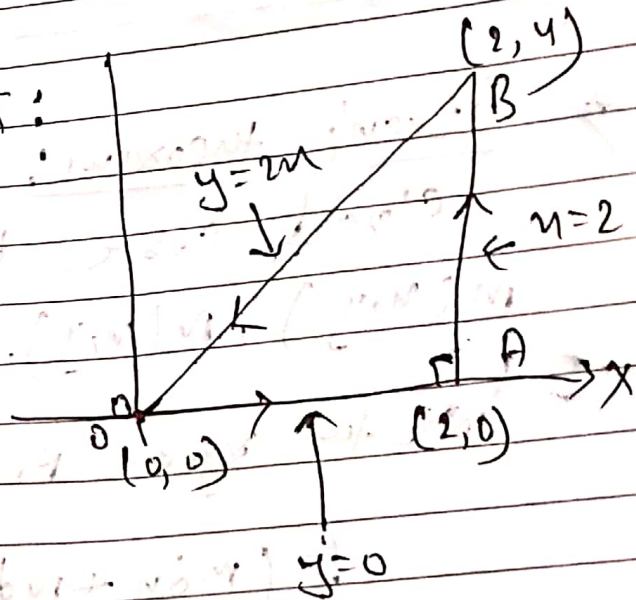 (2, 4)
B
y=2x
x=2
A
X
O
(0, 0)
(2, 0)
y=0